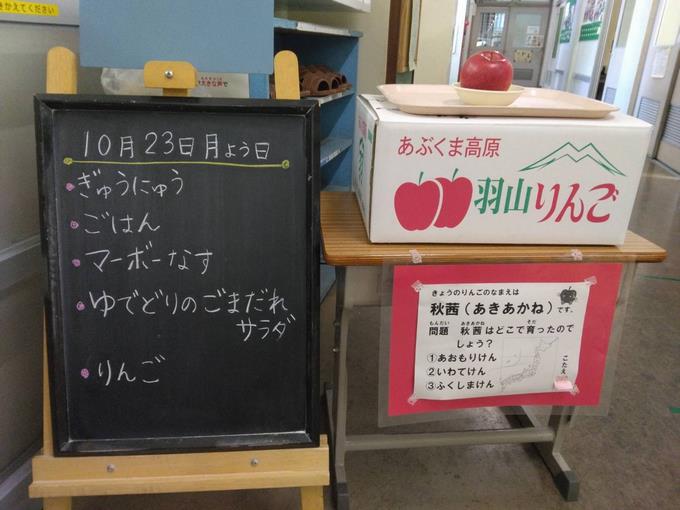 きかえてください
大きな声で
10月23日月よう日
・ぎゅうにゅう
・ごはん
・マーボーなす
・ゆでどりのごまだれ
サラダ
・りんご
あぶくま高原
羽山りんご
きょうのりんごのなまえは
秋茜(あきあかね)です。
もんだい あきあかね そだ
問題 秋茜はどこで育ったので
しょう?
①あおもりけん
②いわてけん
③ふくしまけん
こたえ